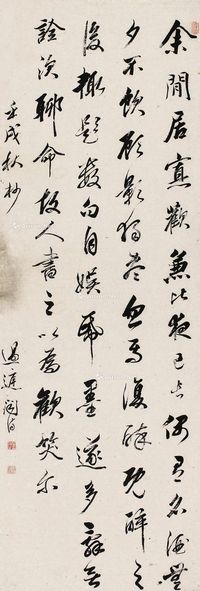 余閒居寡歡兼比夜已長偶有名酒無
夕不飲顧影獨盡忽焉復醉既醉之
後輒題數句自娛紙墨遂多辭無
詮次聊命故人書之以為歡笑爾
壬戌秋杪